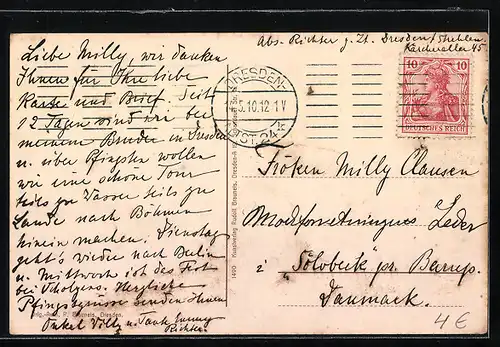 Abs. Richter z. Zt. Dresden/Strehlen
Liebe Milly, wir danken
Ihnen für Ihre liebe
Karte und Brief. Seit
12 Tagen sind wir bei
meinem Bruder in Dresden
u. über Pfingsten wollen
wir eine schöne Tour
teils zu Wasser teils zu
Lande nach Böhmen
hinein machen. Dienstag
geht's wieder nach Berlin
u. Mittwoch ist das Fest
bei Herzliche
Pfingstgrüsse senden Ihnen
Onkel Willy u. Tante
Richter
DRESDEN-
5.10.12 1V
ST. 24
10 10
DEUTSCHES REICH
Fröken Milly Clausen
Leder
i Sölvbeck pr. Barup.
Danmark.
1490 Kunstverlag Rudolf Brunneis, Dresden-A
Dresden.
4€